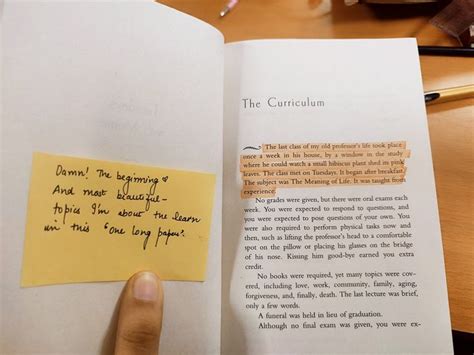 Damn! The beginning ♥
And most beautiful-
topics I'm about the learn
in this "one long paper".
The Curriculum
The last class of my old professor's life took place
once a week in his house, by a window in the study
where he could watch a small hibiscus plant shed its pink
leaves. The class met on Tuesdays. It began after breakfast.
The subject was The Meaning of Life. It was taught from
experience.
No grades were given, but there were oral exams each
week. You were expected to respond to questions, and
you were expected to pose questions of your own. You
were also required to perform physical tasks now and
then, such as lifting the professor's head to a comfortable
spot on the pillow or placing his glasses on the bridge
of his nose. Kissing him good-bye earned you extra
credit.
No books were required, yet many topics were cov-
ered, including love, work, community, family, aging,
forgiveness, and, finally, death. The last lecture was brief,
only a few words.
A funeral was held in lieu of graduation.
Although no final exam was given, you were ex-